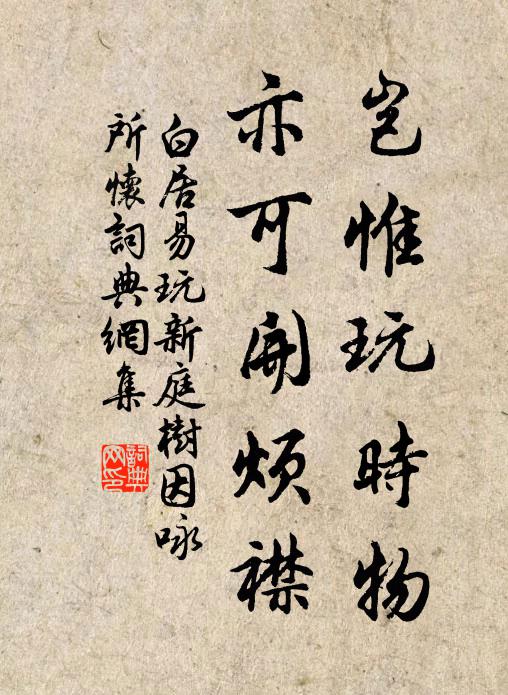 豈惟玩時物
亦可開煩襟
白居易玩新庭樹因咏
所懷詞典網集
詞典
网印